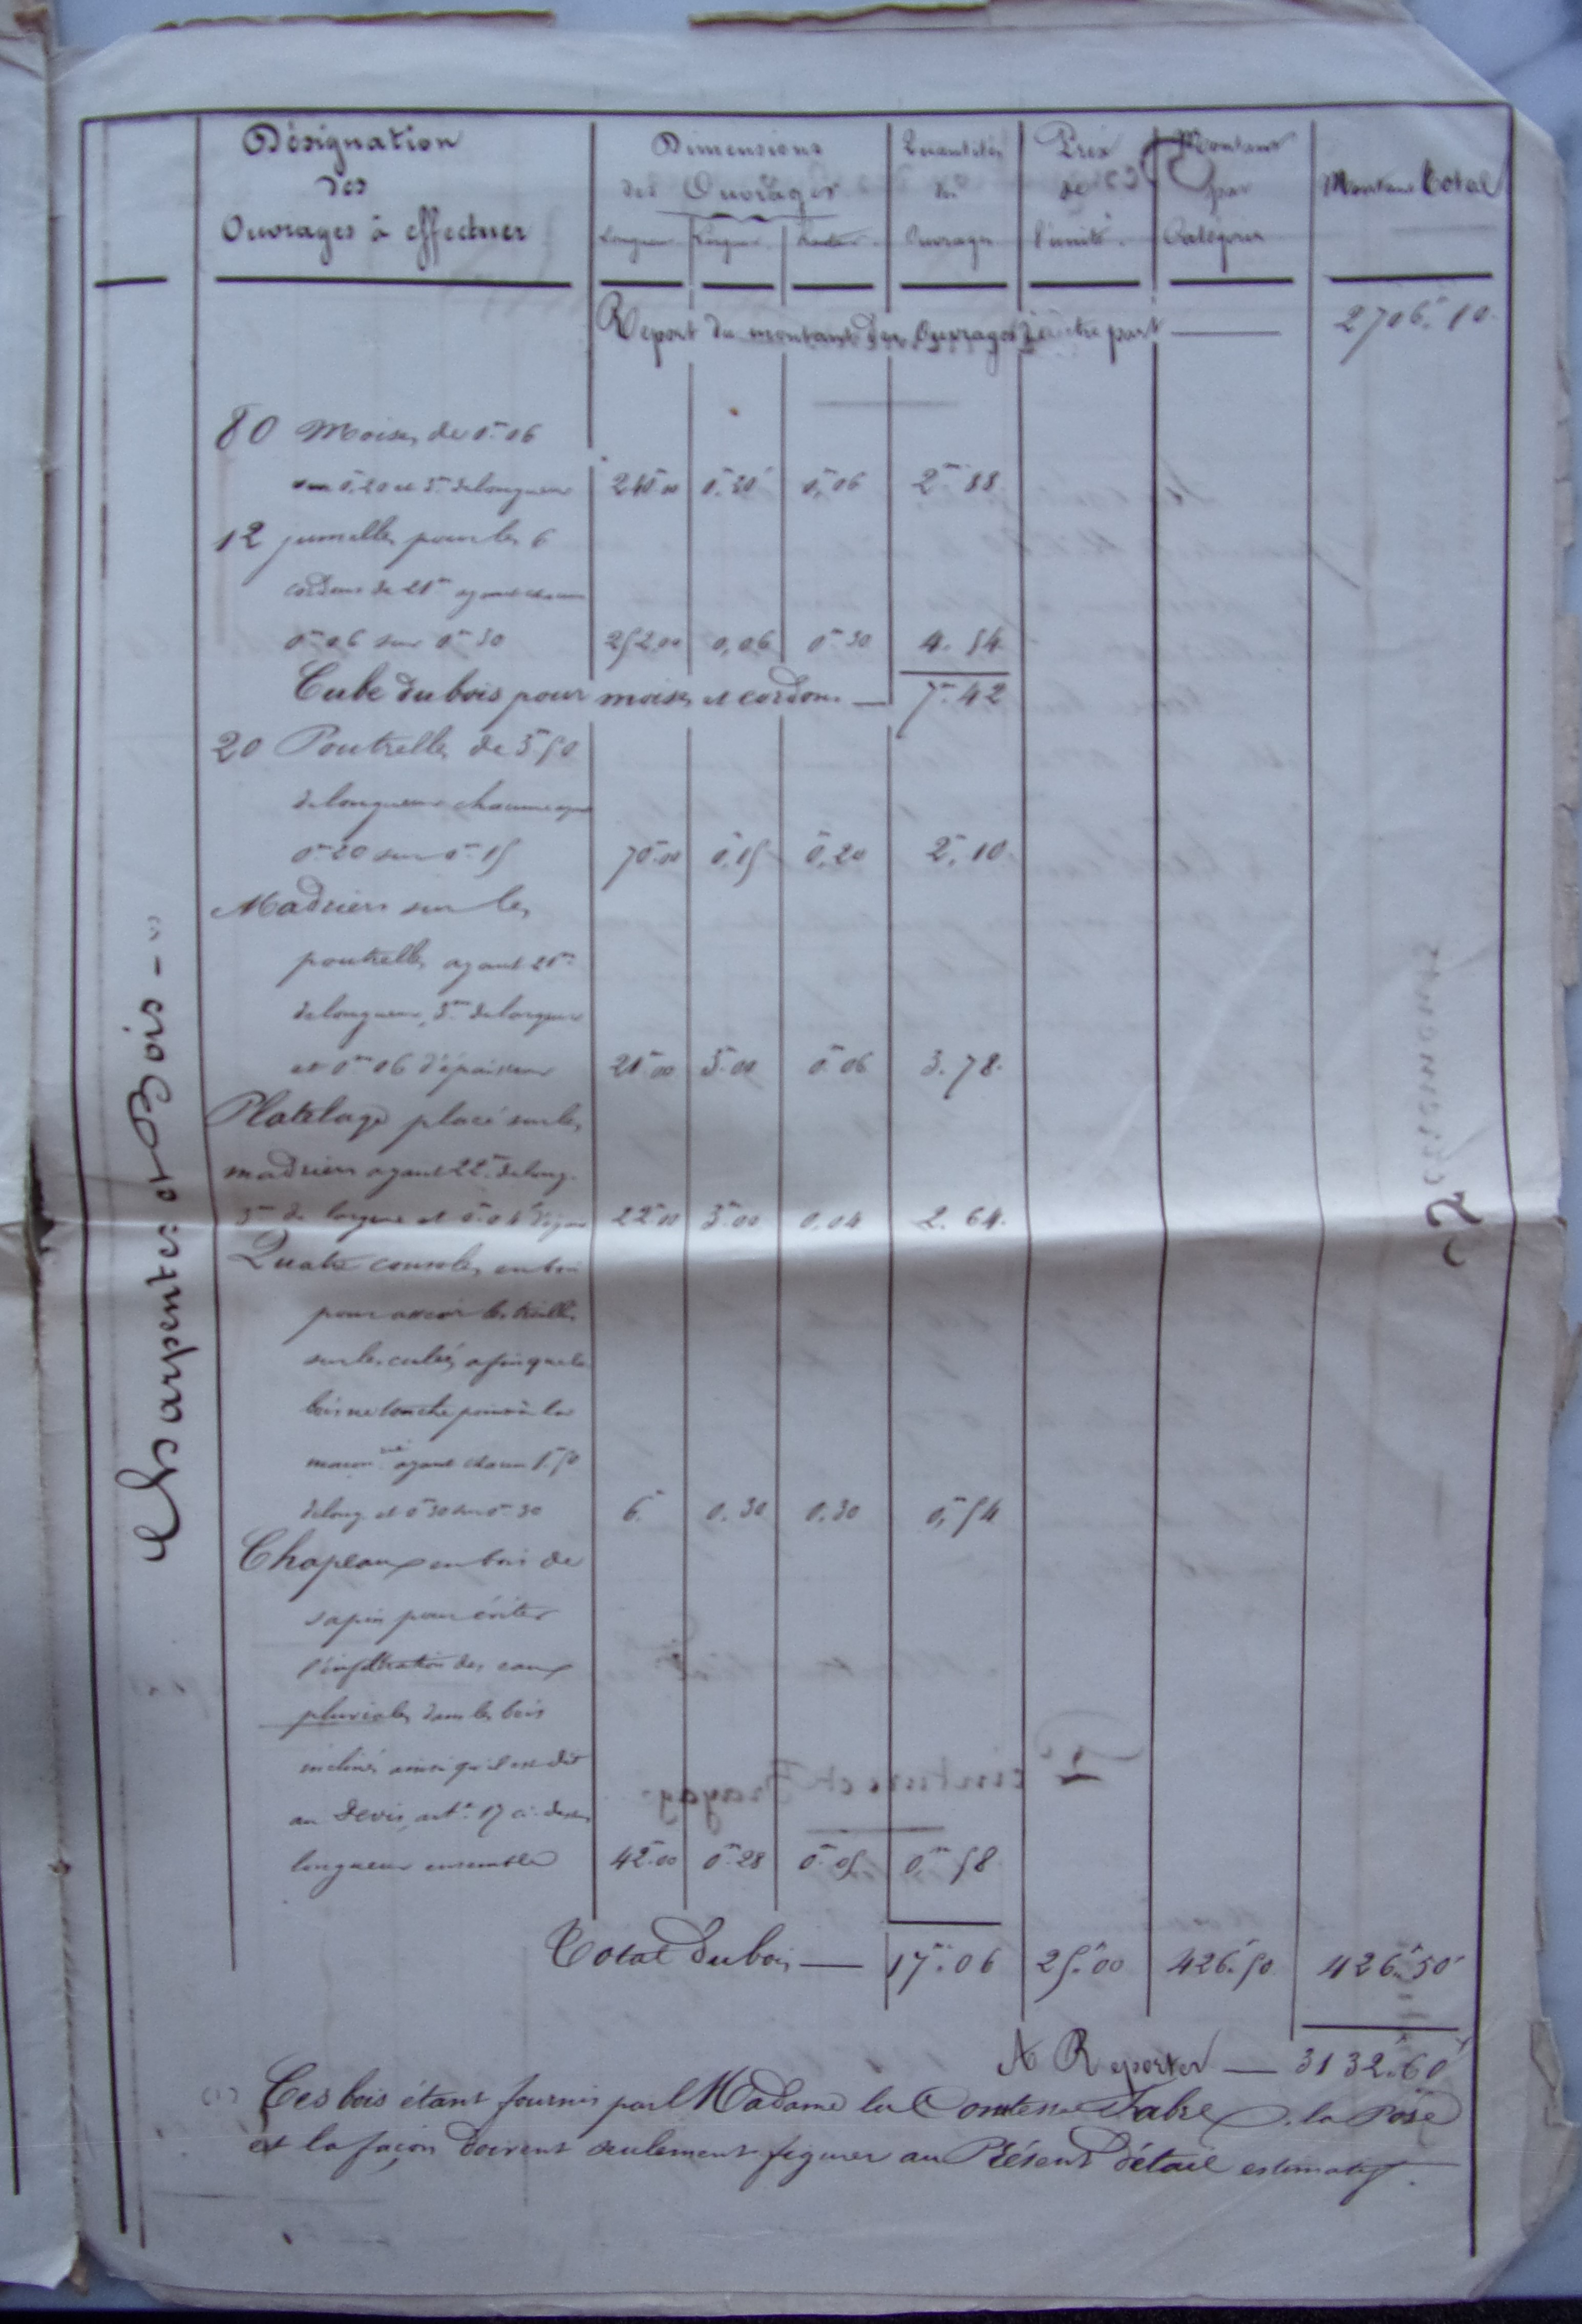 Désignation
des
Ouvrages à effectuer
Dimensions
des Ouvrages
Longueur Largeur Hauteur
Quantités
des
Ouvrages
Prix
de
l'unité.
Montant
par
Catégorie
Montant Total
Report du montant des Ouvrages d'autre part — 2706.f 10
Charpentes et Bois - (1)
80 Moises de 0.m 06
sur 0.m20 et 3.m de longueur 240.m00 0.m20 0.m06 2.m 88
12 jumelles pour les 6
cordons de 21m ayant chacun
0.m06 sur 0.m 30 252.00 0,06 0.m 30 4. 54
Cube du bois pour moises et cordons — 7.m 42
20 Poutrelles de 3m50
de longueur chacune ayant
0.m20 sur 0.m 15 70.m00 0.m15 0.m20 2.m10
Madriers sur les
poutrelles ayant 21m
de longueur, 3.m de largeur
et 0m06 d'épaisseur 21.m00 3.m00 0.m06 3.78.
Platelage placé sur les
madriers ayant 22m de long.
3m de largeur et 0.m04 d'épais 22.m00 3.m00 0,04 2. 64.
Quatre consoles en bois
pour asseoir les treillis
sur les culées afin que le
bois ne touche point à la
maçonrie ayant chacun 1.m50
de long et 0m30 sur 0m30 6.m 0.30 0.30 0,m54
Chapeaux en bois de
sapin pour éviter
l'infiltration des eaux
pluviales dans les bois
inclinés ainsi qu'il est dit
au Devis, art.e 17 ci-dessus
longueur ensemble 42.m00 0m.28 0.m05 0.m58
Total du bois — 17.m06 25.f00 426.f50 426.f50
A Reporter — 3132.f60
(1) Ces bois étant fournis par Madame la Comtesse Fabre, la Pose
et la façon doivent seulement figurer au Présent détail estimatif.